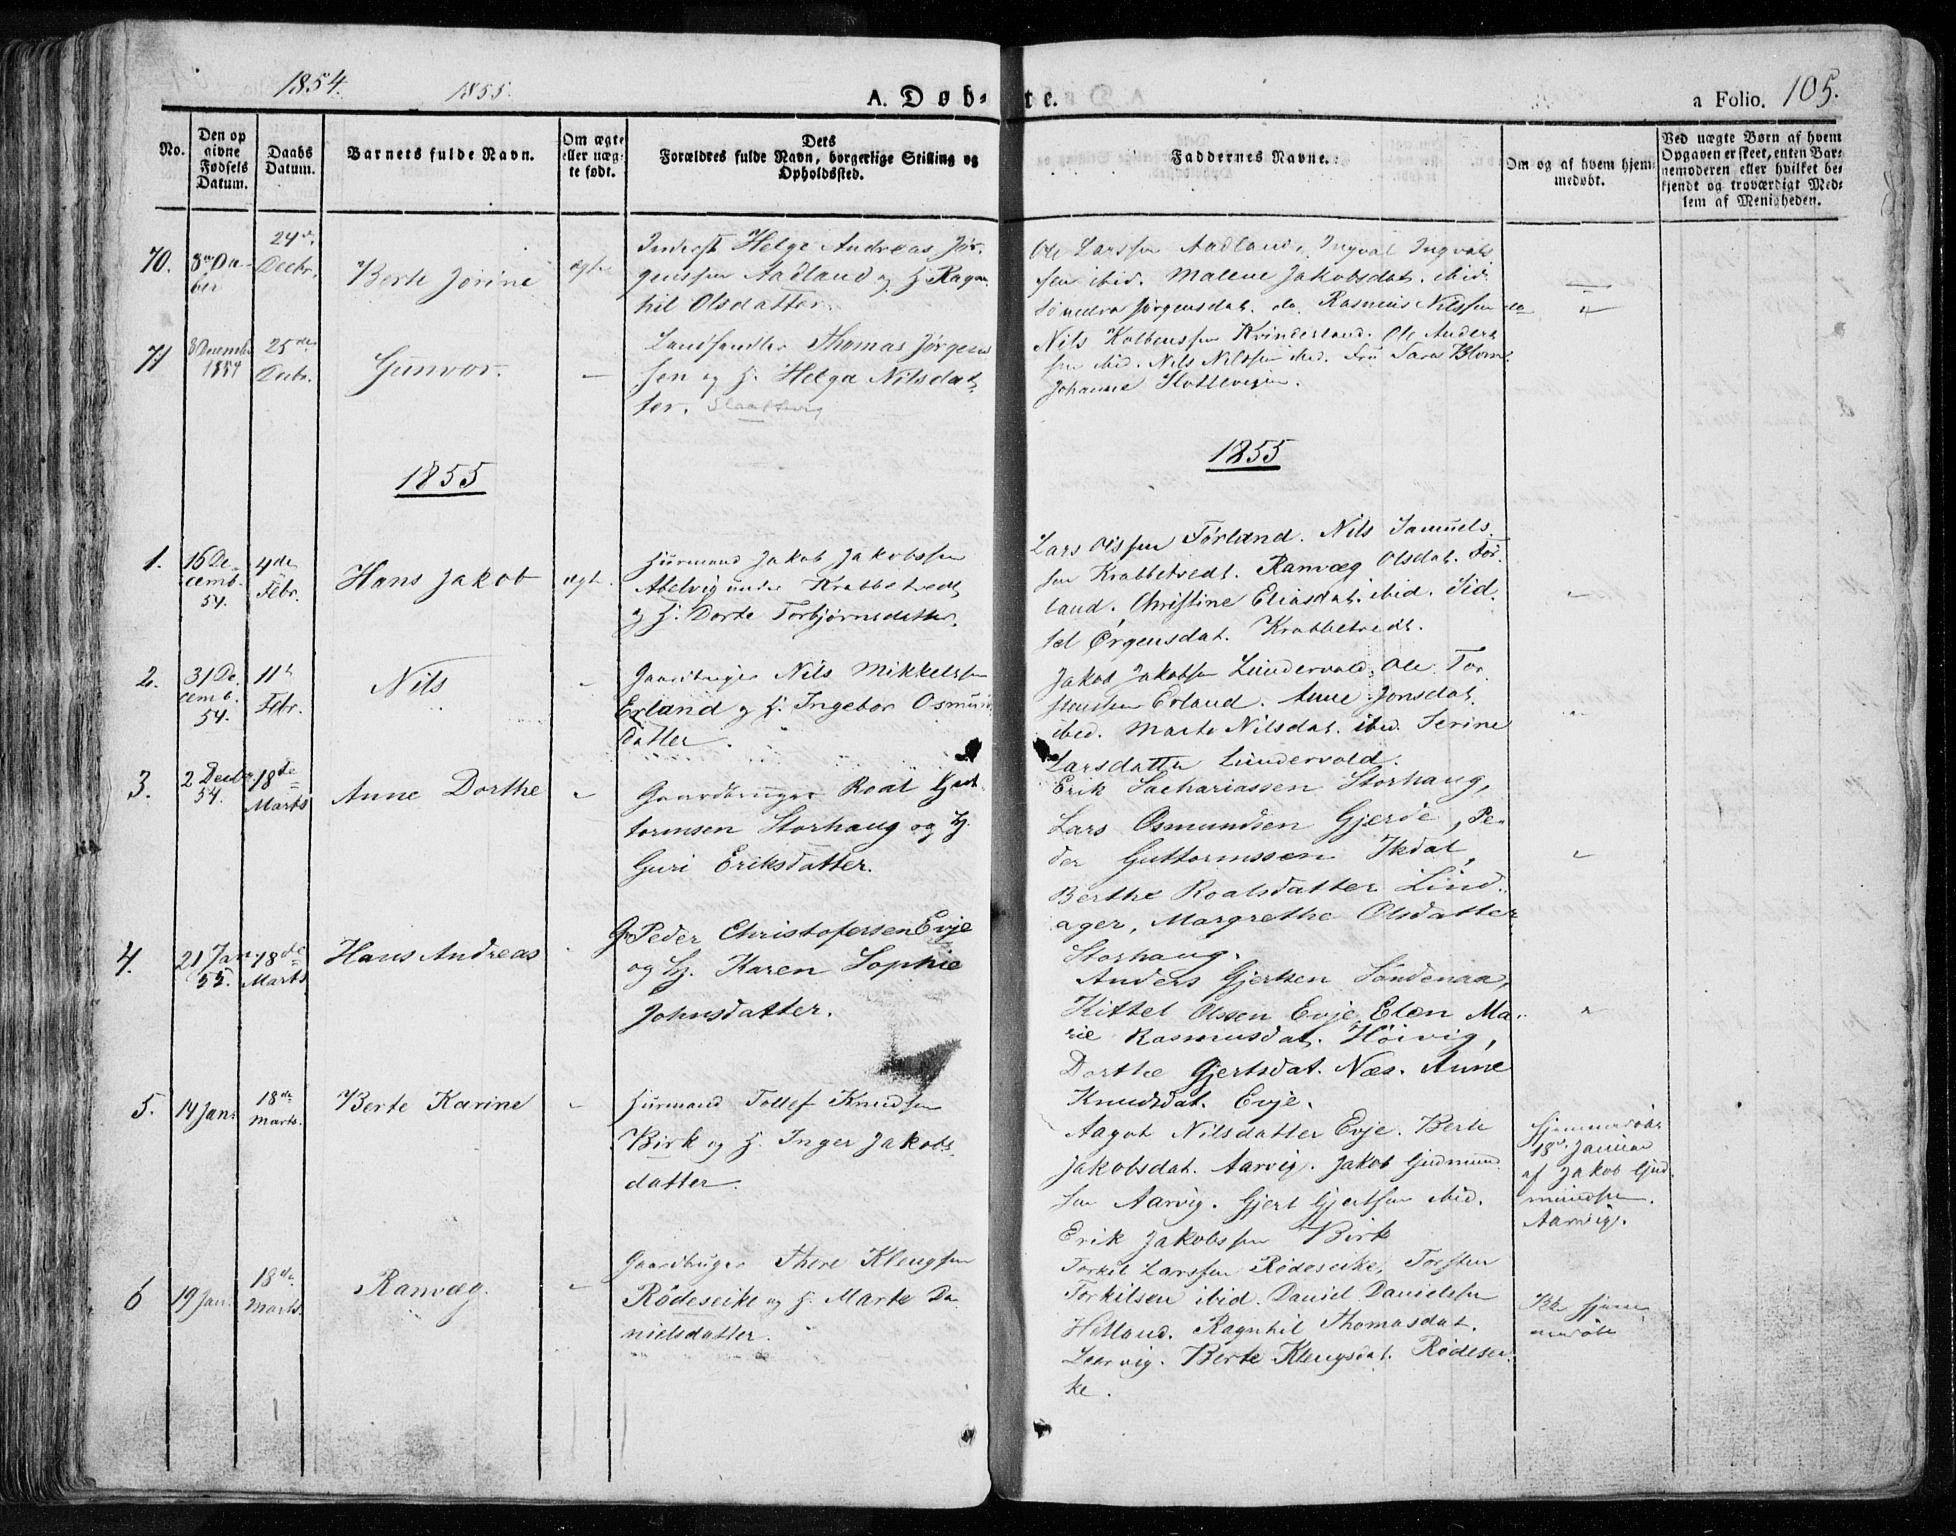 1854. 1855. A. Døb- te. a Folio. 105.
No.
Den op
givne
Fødsels
Datum.
Daabs
Datum.
Barnets fulde Navn.
Om ægte
eller uæg-
te født.
Dets
Forældres fulde Navn, borgerlige Stilling og
Opholdssted.
Faddernes Navne.
Om og af hvem hjem-
medøbt.
Ved uægte Børn af hvem
Opgaven er skeet, enten Bar-
nemoderen eller hvilket be-
kjendt og troværdigt Med-
lem af Menigheden.
70.
24de
Decbr.
Berte Jorine
ægte
Inderst Helge Andreas Jør-
gensen Aadland og H. Ragn-
hil Olsdatter.
Ole Larssen Aadland, Ingval Ingvals
sen ibid. Malene Jakobsdat. ibid.
Jørgensdat. do. Rasmus Nilssen do
71
8 Decembr
1854
25de
Decbr.
Gunvor.
Landhandler Thomas Jørgen
sen og H. Helga Nilsdat
ter.
Nils Kolbenssen Kvinderland. Ole Anders
sen ibid. Nils Nilssen ibid. Fru Blom
Johanne Slottevigen.
1855
1855
1.
16 De-
cemb.
54.
4de
Febr.
Hans Jakob
ægt.
Huusmand Jakob Jakobssen
Abelvig under Krabbetvedt
og H. Dorte Torbjørnsdatter.
Lars Olssen Førland. Nils Samuels
sen Krabbetvedt. Ranvæg Olsdat. Før-
land. Christine Eliasdat. ibid. Sid-
sel Ørgensdat. Krabbetvedt.
2.
31 De-
cemb.
54.
11te
Febr.
Nils
Gaardbruger Nils Mikkelssen
Erland og H. Ingebor Osmund
datter.
Jakob Jakobsen Lundervold. Ole Tor-
stensen Erland. Anne Jonsdat.
ibid. Marte Nilsdat. ibid. Serine
Larsdatter Lundervold.
3.
2 Decbr.
54.
18de
Marts
Anne Dorthe
Gaardbruger Roal Gut-
tormsen Storhaug og H.
Guri Eriksdatter.
Erik Sachariassen Storhaug,
Lars Osmundsen Gjerde, Pe-
der Guttormssen Ikdal,
Berthe Roalsdatter Lind-
ager, Margrethe Olsdatter
Storhaug.
4.
21 Jan
55.
18de
Marts
Hans Andreas
G. Peder Christofersen Evje
og H. Karen Sophie
Johnsdatter.
Anders Gjertsen Søndenaa,
Kittel Olssen Evje, Elen Ma-
rie Rasmusdat. Høivig,
Dorthe Gjertsdat. Næs. Anne
Knudsdat. Evje.
5.
14 Jan:
18de
Marts.
Berte Karine
Huusmand Tollef Knudsen
Birk og H. Inger Jakobs-
datter.
Aagot Nilsdatter Evje. Berte
Jakobsdat. Aarvig. Jakob Gudmund-
sen Aarvig. Gjert Gjertsen ibid.
Erik Jakobssen Birk
Hjemmedøbt
18de Januar
af Jakob Gud-
mundsen
Aarvig.
6
19 Jan.
18de
Marts.
Ranvæg.
Gaardbruger Thore Klengsen
Rødeseike og H. Marte Da-
nielsdatter.
Torkil Larssen Rødeseike, Torsten
Torkilsen ibid. Daniel Danielsen
Hetland. Ragnhil Thomasdat.
Leervig. Berte Klengsdat. Rødesei-
ke.
Ikke hjem-
medøbt